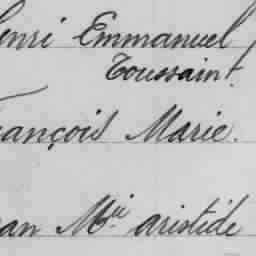 enri Emmanuel
Toussaint.
rançois Marie.
ean Mie aristide